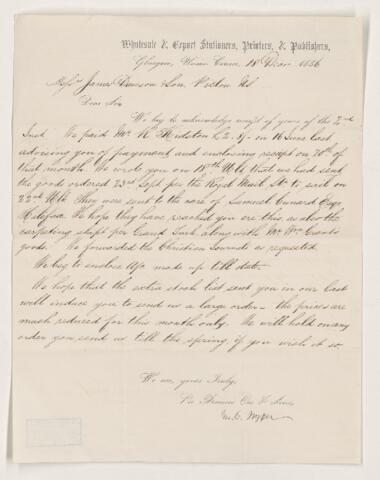 Wholesale & Export Stationers, Printers, & Publishers,
Glasgow, 18 1886
Messrs James Dawson & Son, Pictou NS
Dear Sirs
We beg to acknowledge receipt of yours of the 2nd
Inst. We paid Mr. R. £2. 8/- on 16 June last
advising you of payment and enclosing receipt on 20th of
that month. We wrote you on 18th Ulto that we had sent
the goods ordered 23rd Sept per the Royal Mail Str to sail on
22nd Ulto They were sent to the care of Samuel Cunard Esqr
Halifax. We hope they have reached you ere this, as also the
carpeting shipt per Grand Turk along with Mr Wm Grant's
goods. We forwarded the Christian Journals as requested.
We beg to enclose a/c made up till date.
We hope that the extra stock list sent you in our last
will induce you to send us a large order – the prices are
much reduced for this month only. We will hold on any
order you send us till the spring, if you wish it so.
We are, yours truly,